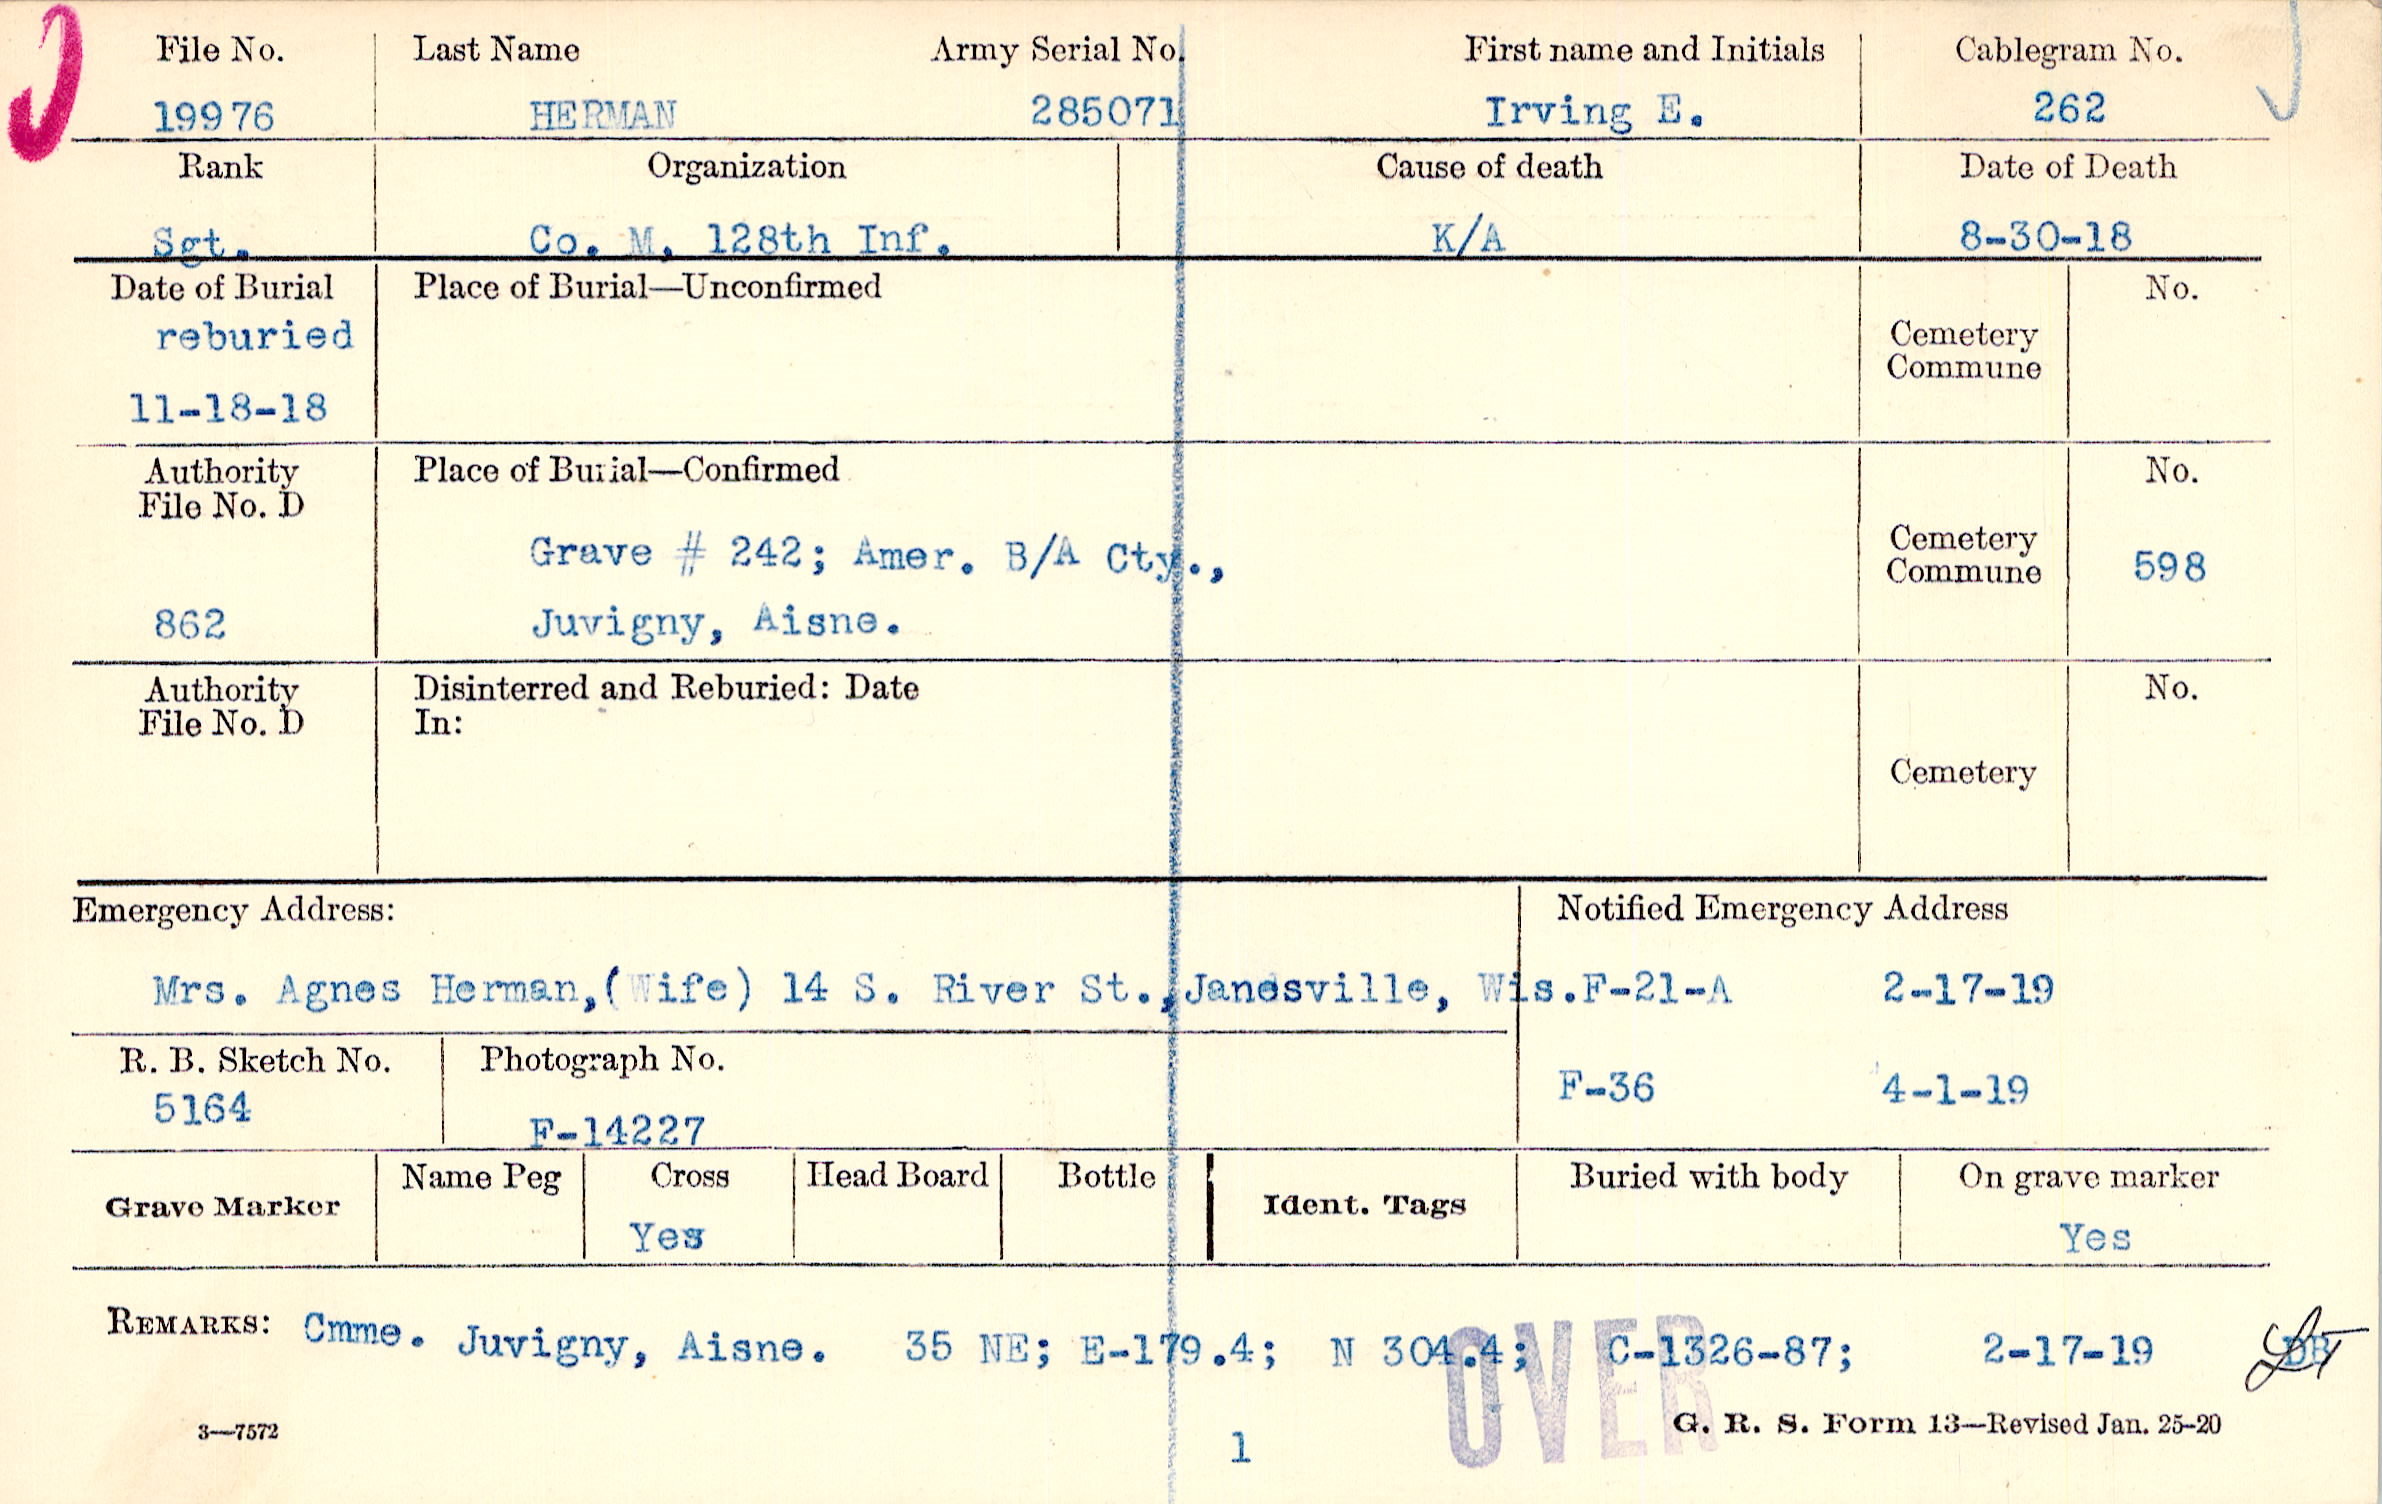 File No. Last Name Army Serial No. First name and Initials Cablegram No.
19976 HERMAN 285071 Irving E. 262
Rank Organization Cause of death Date of Death
Sgt. Co. M, 128th Inf. K/A 8-30-18
Date of Burial Place of Burial—Unconfirmed No.
reburied Cemetery
Commune
11-18-18
Authority Place of Burial—Confirmed No.
File No. D
Grave # 242; Amer. B/A Cty., Cemetery
Commune 598
862 Juvigny, Aisne.
Authority Disinterred and Reburied: Date No.
File No. D In:
Cemetery
Emergency Address: Notified Emergency Address
Mrs. Agnes Herman,(Wife) 14 S. River St.,Janesville, Wis. F-21-A 2-17-19
R. B. Sketch No. Photograph No.
5164 F-14227 F-36 4-1-19
Grave Marker Name Peg Cross Head Board Bottle Ident. Tags Buried with body On grave marker
Yes Yes
REMARKS: Cmme. Juvigny, Aisne. 35 NE; E-179.4; N 304.4; C-1326-87; 2-17-19
OVER
3—7572 1 G. R. S. Form 13—Revised Jan. 25-20